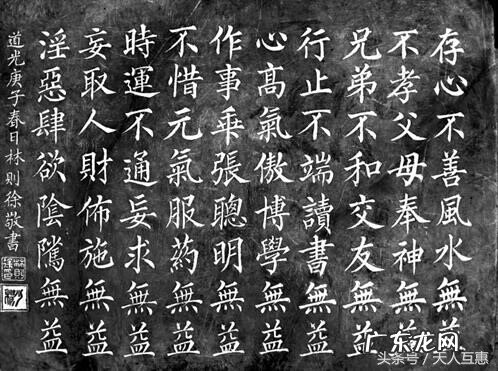 存心不善風水無益
不孝父母奉神無益
兄弟不和交友無益
行止不端讀書無益
心高氣傲博學無益
作事乖張聰明無益
不惜元氣服藥無益
時運不通妄求無益
妄取人財佈施無益
淫惡肆欲陰騭無益
道光庚子春日林則徐敬書
广东龙网
头条号/天人互惠